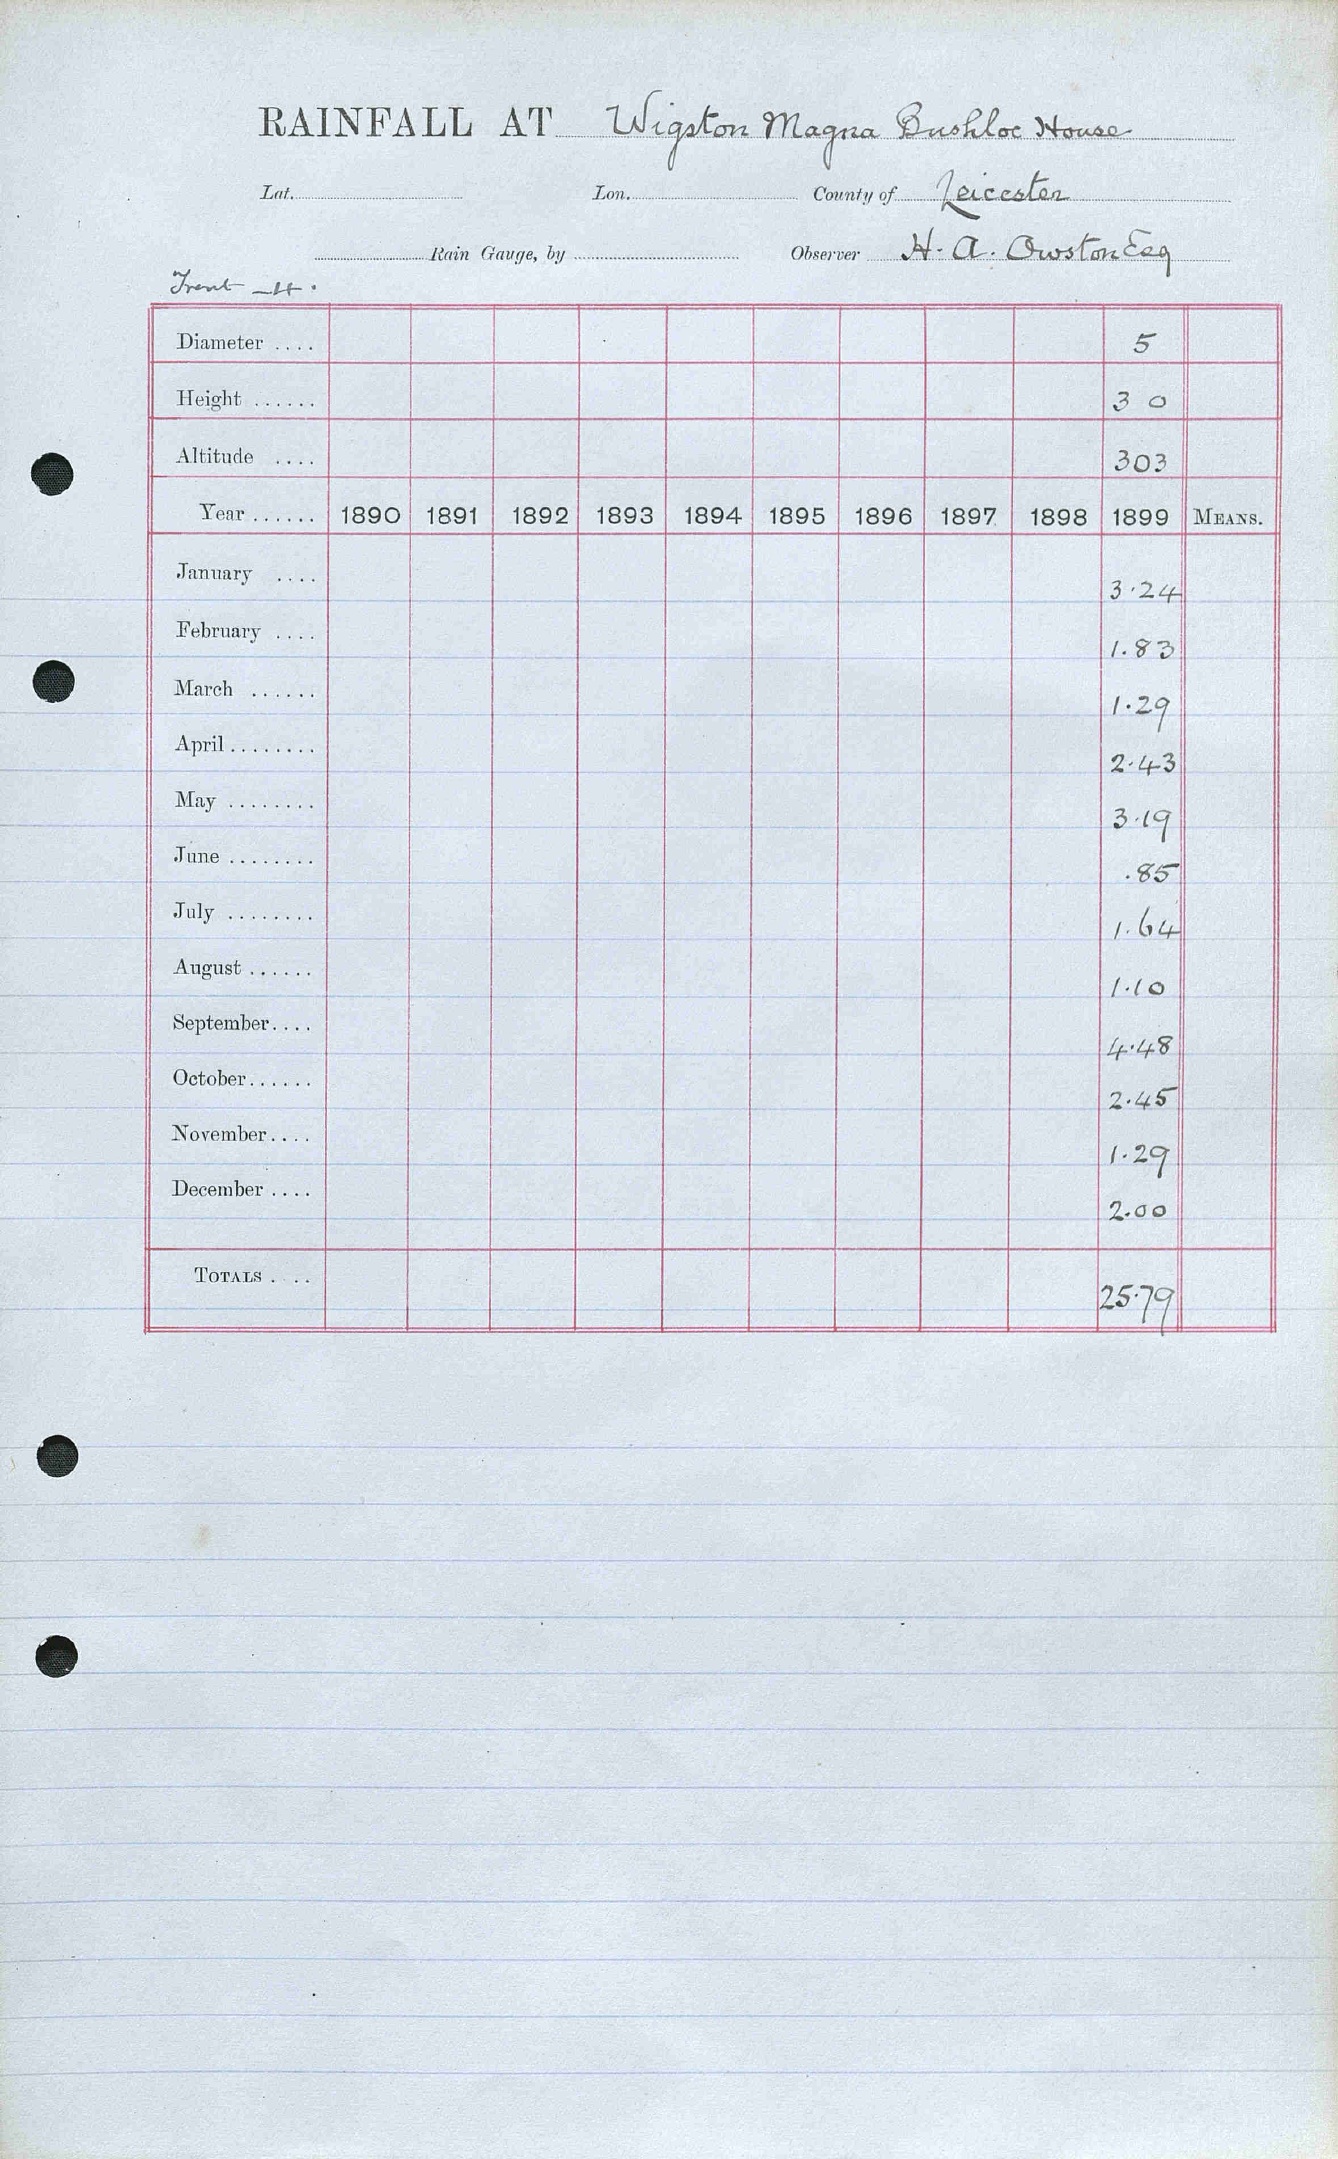 RAINFALL AT Wigston Magna Bushloe House
Lat. Lon. County of Leicester
Rain Gauge, by Observer H. A. Owston Esq
Trent
Diameter .... 5
Height ...... 30
Altitude .... 303
Year ...... 1890 1891 1892 1893 1894 1895 1896 1897 1898 1899 MEANS.
January .... 3.24
February .... 1.83
March ...... 1.29
April ........ 2.43
May ........ 3.19
June ........ .85
July ........ 1.64
August ...... 1.10
September.... 4.48
October...... 2.45
November.... 1.29
December .... 2.00
TOTALS . .. 25.79